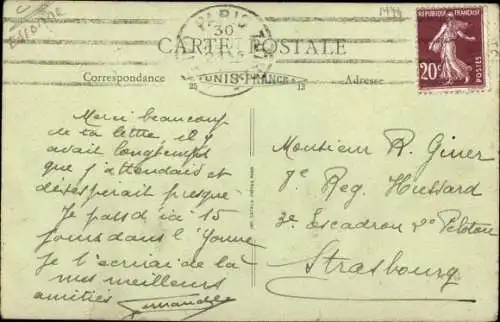 1444
PARIS
30
CARTE POSTALE
UNIS-FRANCE
Correspondance
25
13
Adresse
REPUBLIQUE FRANÇAISE
20c
POSTES
Merci beaucoup
de ta lettre, il y
avait longtemps
que j'attendais et
désésperait presque
Je pars d'ici 15
jours dans l'Yonne
Je t'écrirai de là
mes meilleurs
amitiés
Monsieur R. Giner
7e Reg. Hussard
3e Escadron 2e Peloton
Strasbourg